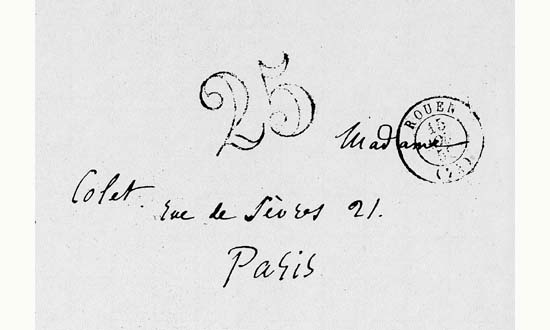 25
ROUEN
15
(74)
Madame
Colet. rue de Sèvres 21.
Paris